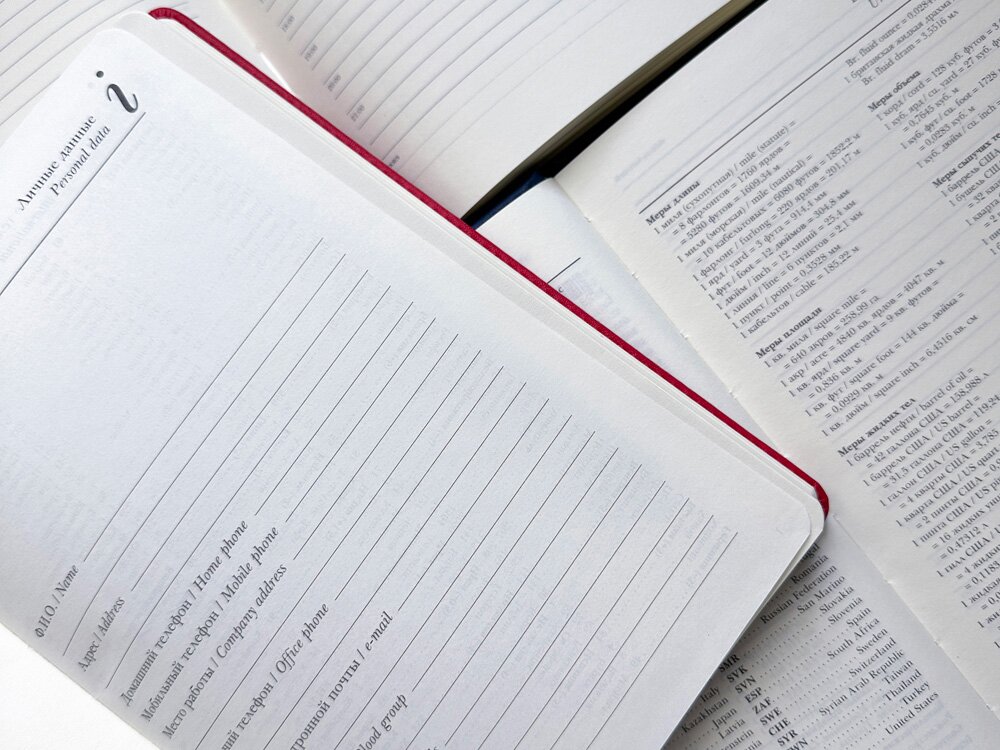 Личные данные
Personal data
i
Ф.И.О. / Name
Адрес / Address
Домашний телефон / Home phone
Мобильный телефон / Mobile phone
Место работы / Company address
телефон / Office phone
почты / e-mail
group
Br. fluid ounce =
1 британская жидкая драхма
Br. fluid dram = 3,5516 мл
Меры объема
1 корд / cord = 128 куб. футов =
1 куб. ярд / cu. yard = 27 куб.
= 0,7645 куб. м
1 куб. фут / cu. foot = 1728
= 0,0283 куб. м
1 куб. дюйм / cu. inch
Меры сыпучих
1 баррель США
1 бушель США
Меры длины
1 миля (сухопутная) / mile (statute) =
= 8 фарлонгов = 1760 ярдов =
= 5280 футов = 1609,34 м
1 миля (морская) / mile (nautical) =
= 10 кабельтовых = 6080 футов = 1852,2 м
1 фарлонг / furlong = 220 ярдов = 201,17 м
1 ярд / yard = 3 фута = 914,4 мм
1 фут / foot = 12 дюймов = 304,8 мм
1 дюйм / inch = 12 линий = 25,4 мм
1 линия / line = 6 пунктов = 2,1 мм
1 пункт / point = 0,3528 мм
1 кабельтов / cable = 185,22 м
Меры площади
1 кв. миля / square mile =
= 640 акров = 258,99 га
1 акр / acre = 4840 кв. ярдов = 4047 кв. м
1 кв. ярд / square yard = 9 кв. футов =
= 0,836 кв. м
1 кв. фут / square foot = 144 кв. дюйма =
= 0,0929 кв. м
1 кв. дюйм / square inch = 6,4516 кв. см
Меры жидких тел
1 баррель нефти / barrel of oil =
= 42 галлона США = 158,988 л
1 баррель США / US barrel =
= 31,5 галлона США =
1 галлон США / US gallon =
= 4 кварты США =
1 кварта США / US quart
= 2 пинты США =
1 пинта США / US
= 16 жидких
= 0,47312 л
1 гилл США /
= 4 жидких
Romania
Russian Federation
SMR San Marino
SVK Slovakia
SVN Slovenia
ESP Spain
ZAF South Africa
SWE Sweden
CHE Switzerland
SYR Syrian Arab Republic
Taiwan
Thailand
Turkey
United States
Italy
Kazakhstan
Japan
Latvia